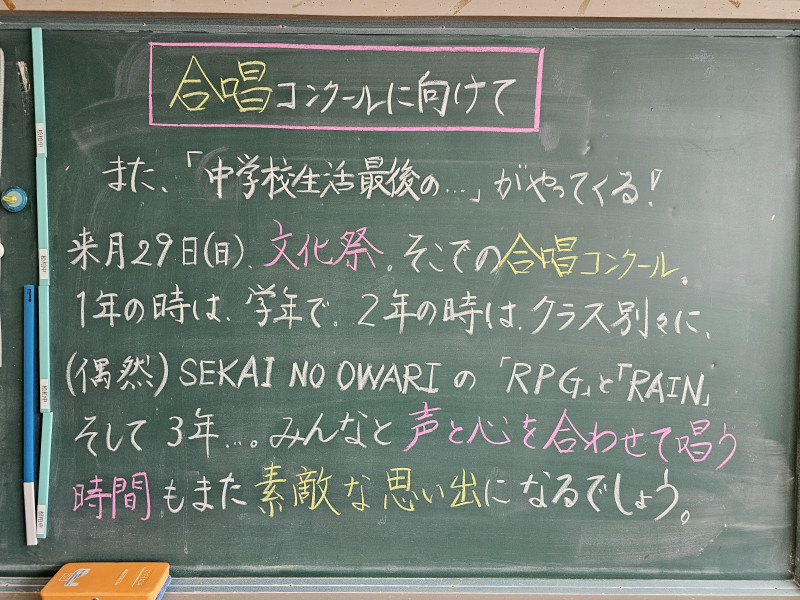 合唱コンクールに向けて
また、「中学校生活最後の…」がやってくる!
来月29日(日)、文化祭。そこでの合唱コンクール。
1年の時は、学年で。2年の時は、クラス別々に、
(偶然)SEKAI NO OWARIの「RPG」と「RAIN」
そして3年…。みんなと声と心を合わせて唱う
時間もまた素敵な思い出になるでしょう。